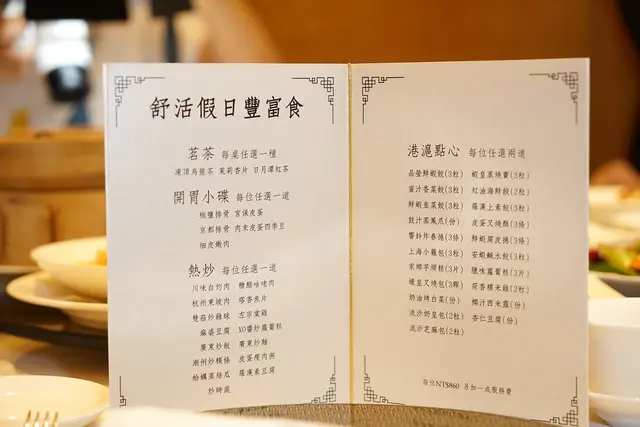 舒活假日豐富食
茗茶 每桌任選一種
凍頂烏龍茶 茉莉香片 日月潭紅茶
開胃小碟 每位任選一道
椒鹽排骨 宮保皮蛋
京都排骨 肉末皮蛋四季豆
細皮嫩肉
熱炒 每位任選一道
川味白灼肉 糖醋咕咾肉
杭州東坡肉 塔香魚片
雙菇炒雞球 左宗棠雞
麻婆豆腐 XO醬炒蘿蔔糕
廣東炒飯 廣東炒麵
潮州炒粿條 皮蛋瘦肉粥
蛤蠣蒸絲瓜 羅漢素豆腐
炒時蔬
港滬點心 每位任選兩道
晶瑩鮮蝦餃(3粒) 蝦皇蒸燒賣(3粒)
蜜汁香菜餃(3粒) 紅油海鮮餃(2粒)
鮮蝦韭菜餃(3粒) 羅漢上素餃(3粒)
豉汁蒸鳳爪(份) 皮蛋叉燒酥(3粒)
響鈴炸春捲(3條) 鮮蝦腐皮捲(3條)
上海小籠包(3粒) 安蝦鹹水餃(3粒)
家鄉芋頭糕(3片) 臘味蘿蔔糕(3片)
蠔皇叉燒包(3顆) 荷香糯米雞(2粒)
奶油烤白菜(份) 椰汁西米露(份)
流沙奶皇包(2粒) 杏仁豆腐(份)
流沙芝麻包(2粒)
每位NT$860 另加一成服務費